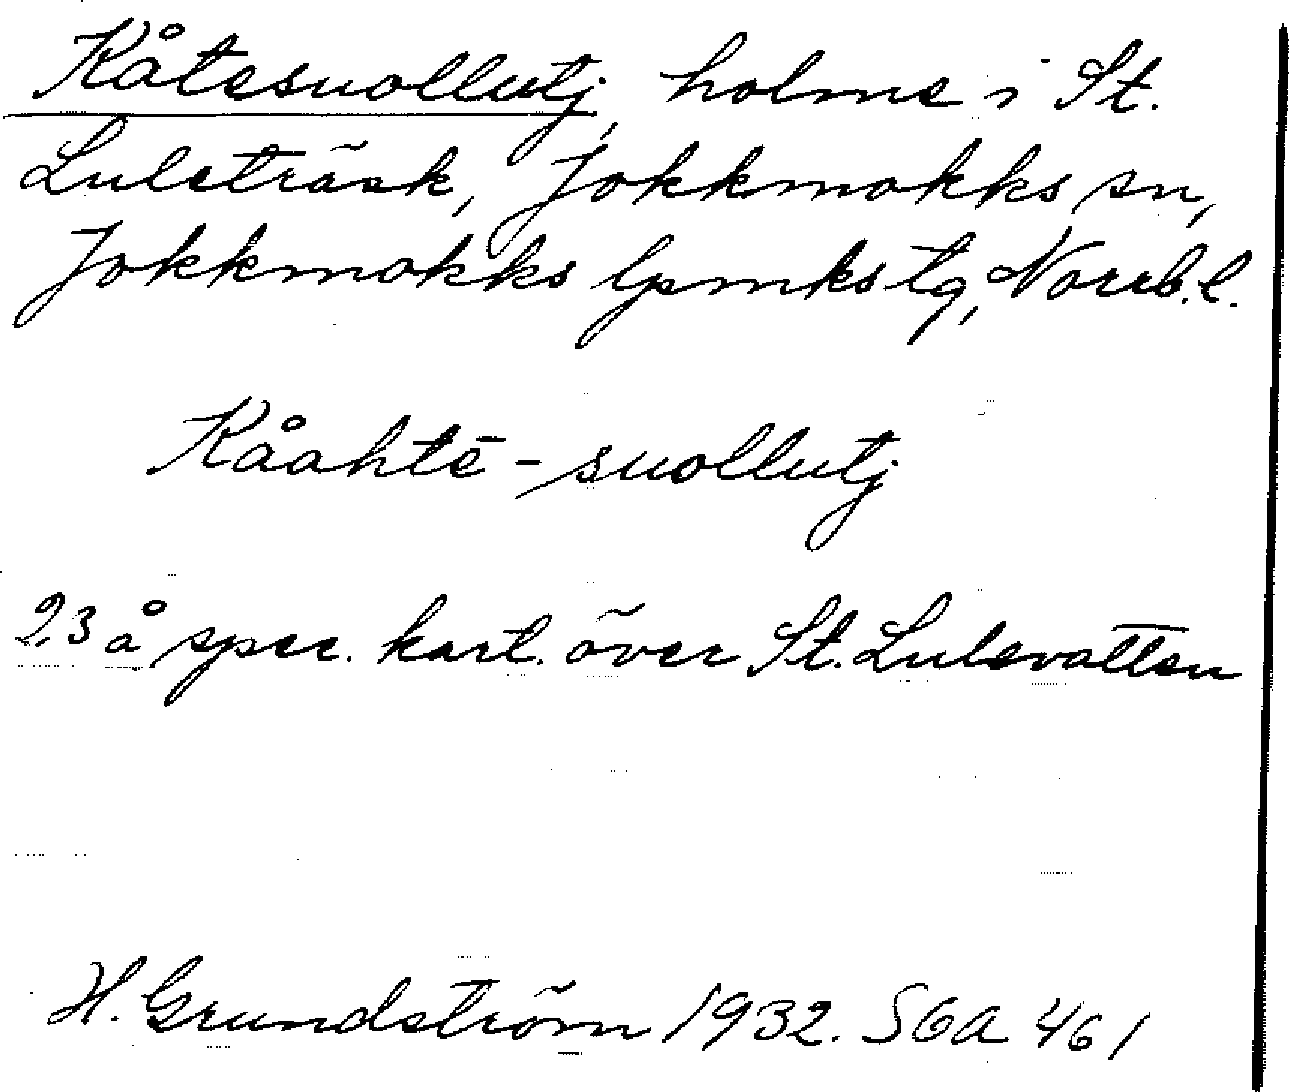 Kåtesuollutj, holme i St.
Luleträsk, Jokkmokks sn,
Jokkmokks lpmks tg, Norrb. l.
Kåahtē-suollutj
23 å spec. kart. över St. Lulevatten
H. Grundström 1932. SGA 461